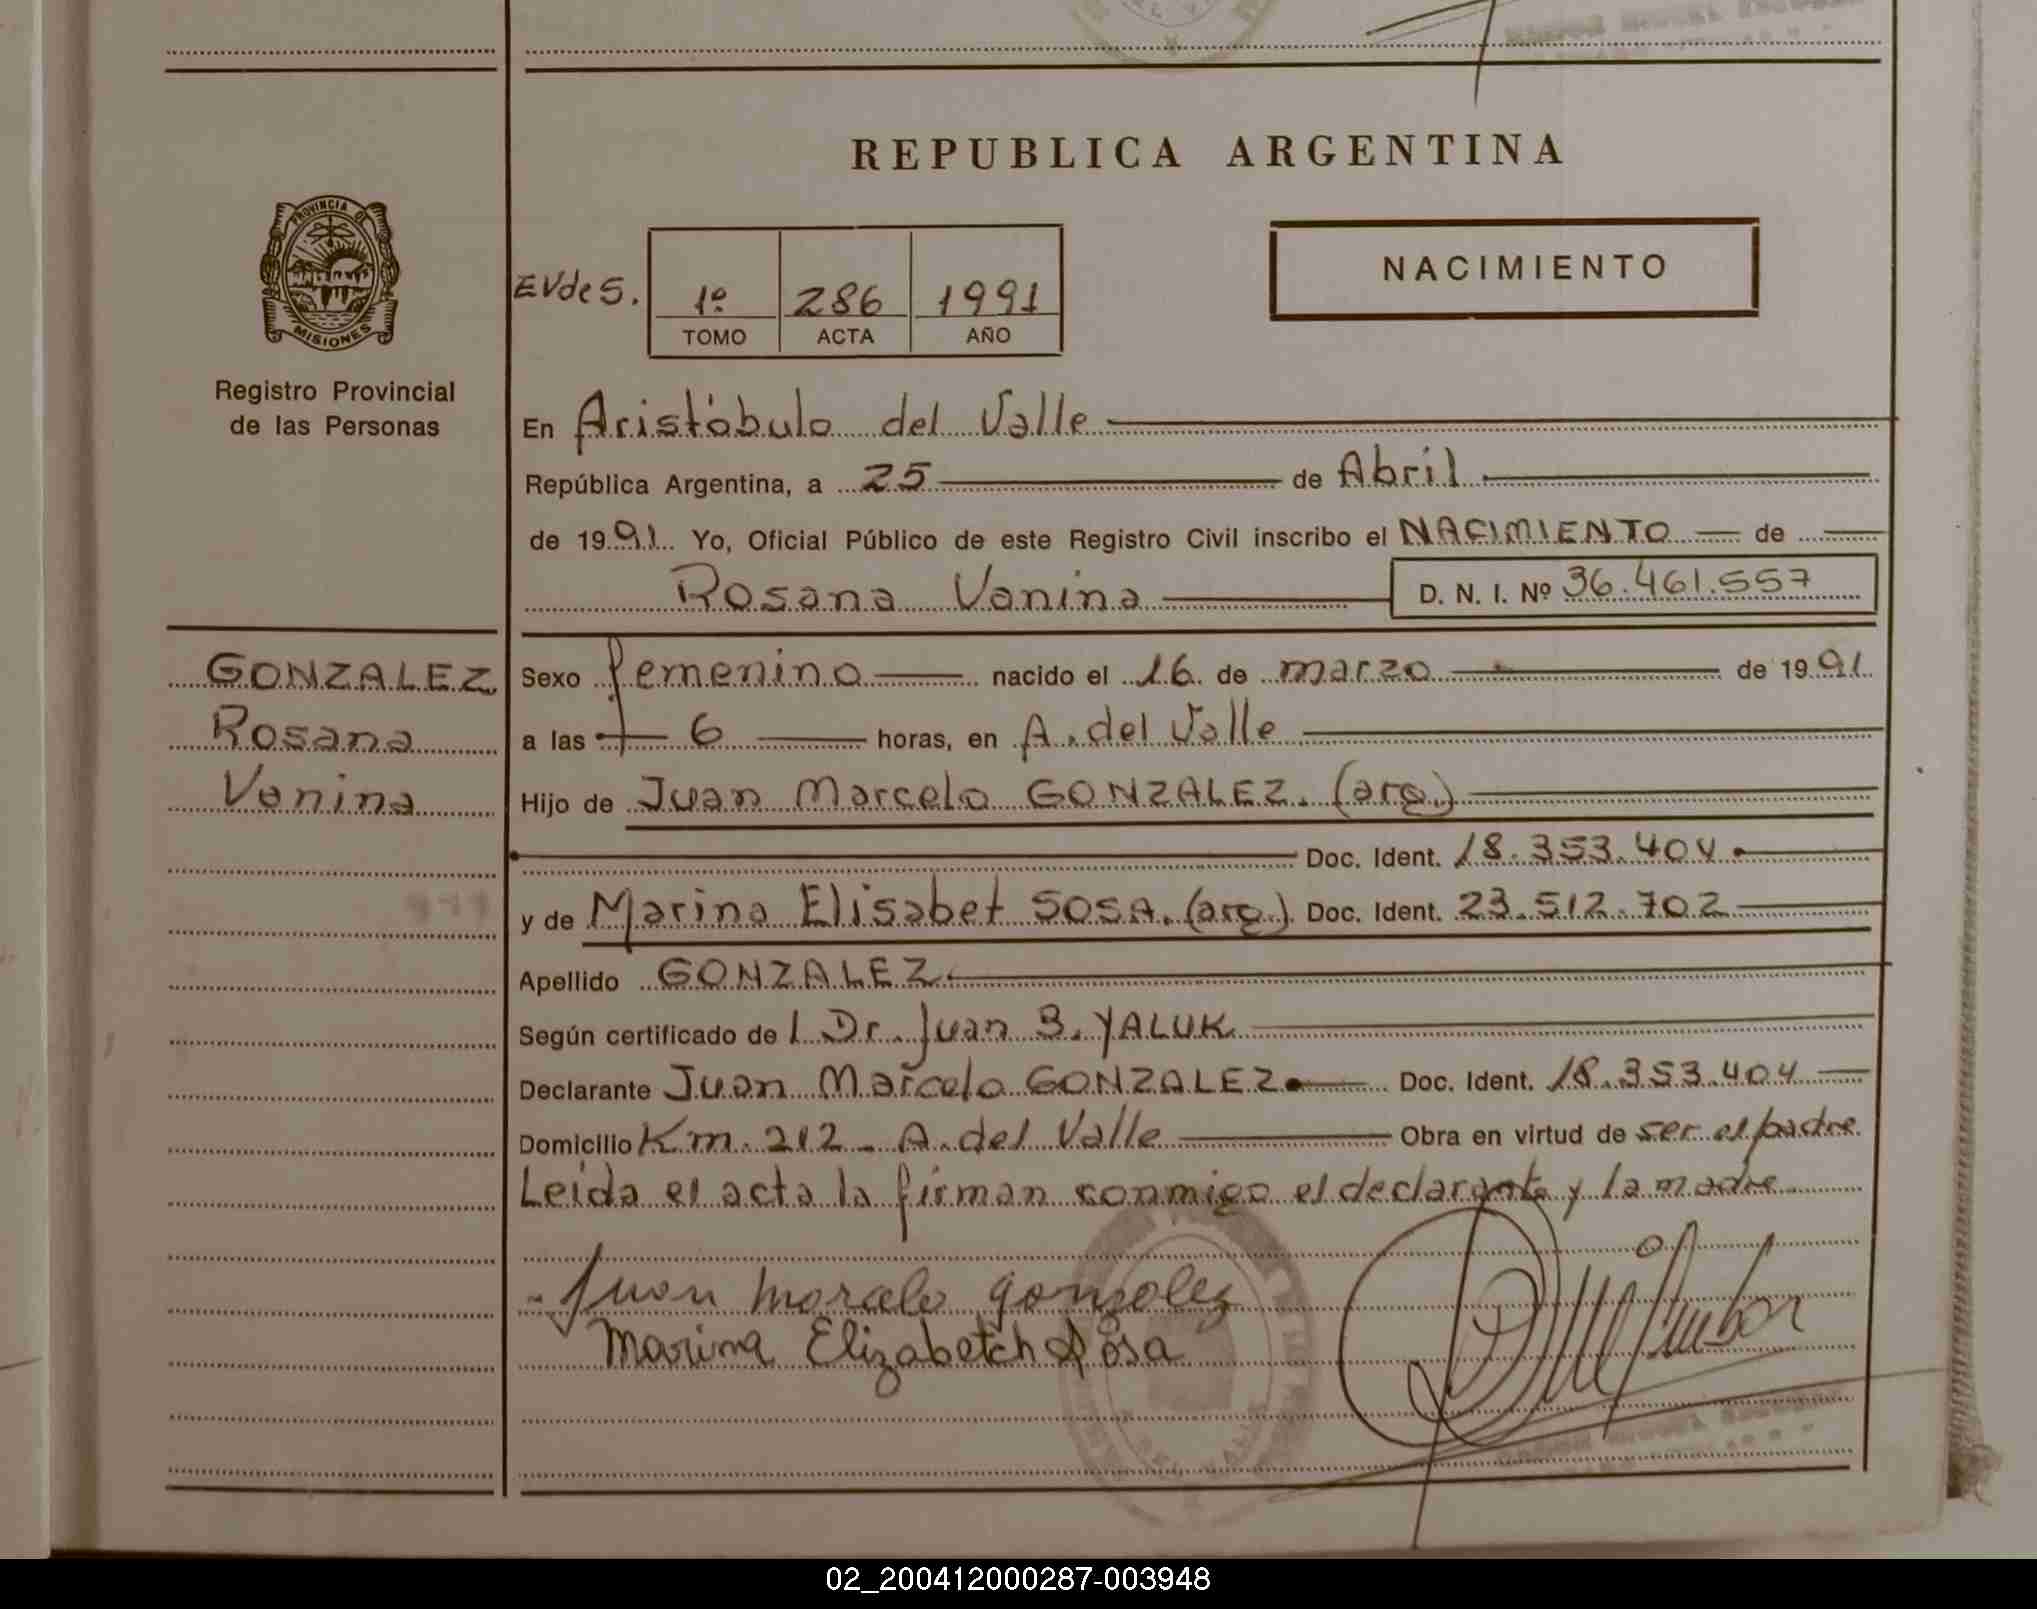 REPUBLICA ARGENTINA
PROVINCIA DE
MISIONES
Registro Provincial
de las Personas
NACIMIENTO
EVdeS.
1º 286 1991
TOMO ACTA AÑO
En Aristóbulo del Valle
República Argentina, a 25 de Abril
de 1991 Yo, Oficial Público de este Registro Civil inscribo el NACIMIENTO de
Rosana Vanina D. N. I. Nº 36.461.557
GONZALEZ
Rosana
Vanina
Sexo femenino nacido el 16 de marzo de 1991
a las 6 horas, en A. del Valle
Hijo de Juan Marcelo GONZALEZ. (arg.)
Doc. Ident. 18.353.404
y de Marina Elisabet SOSA. (arg.) Doc. Ident. 23.512.702
Apellido GONZALEZ.
Según certificado de l Dr. Juan B. YALUK
Declarante Juan Marcelo GONZALEZ Doc. Ident. 18.353.404
Domicilio Km. 212 - A. del Valle Obra en virtud de ser el padre
Leida el acta la firman conmigo el declarante y la madre
Juan marcelo gonzalez
Marina Elizabetch Sosa
DEL VALLE
02_200412000287-003948